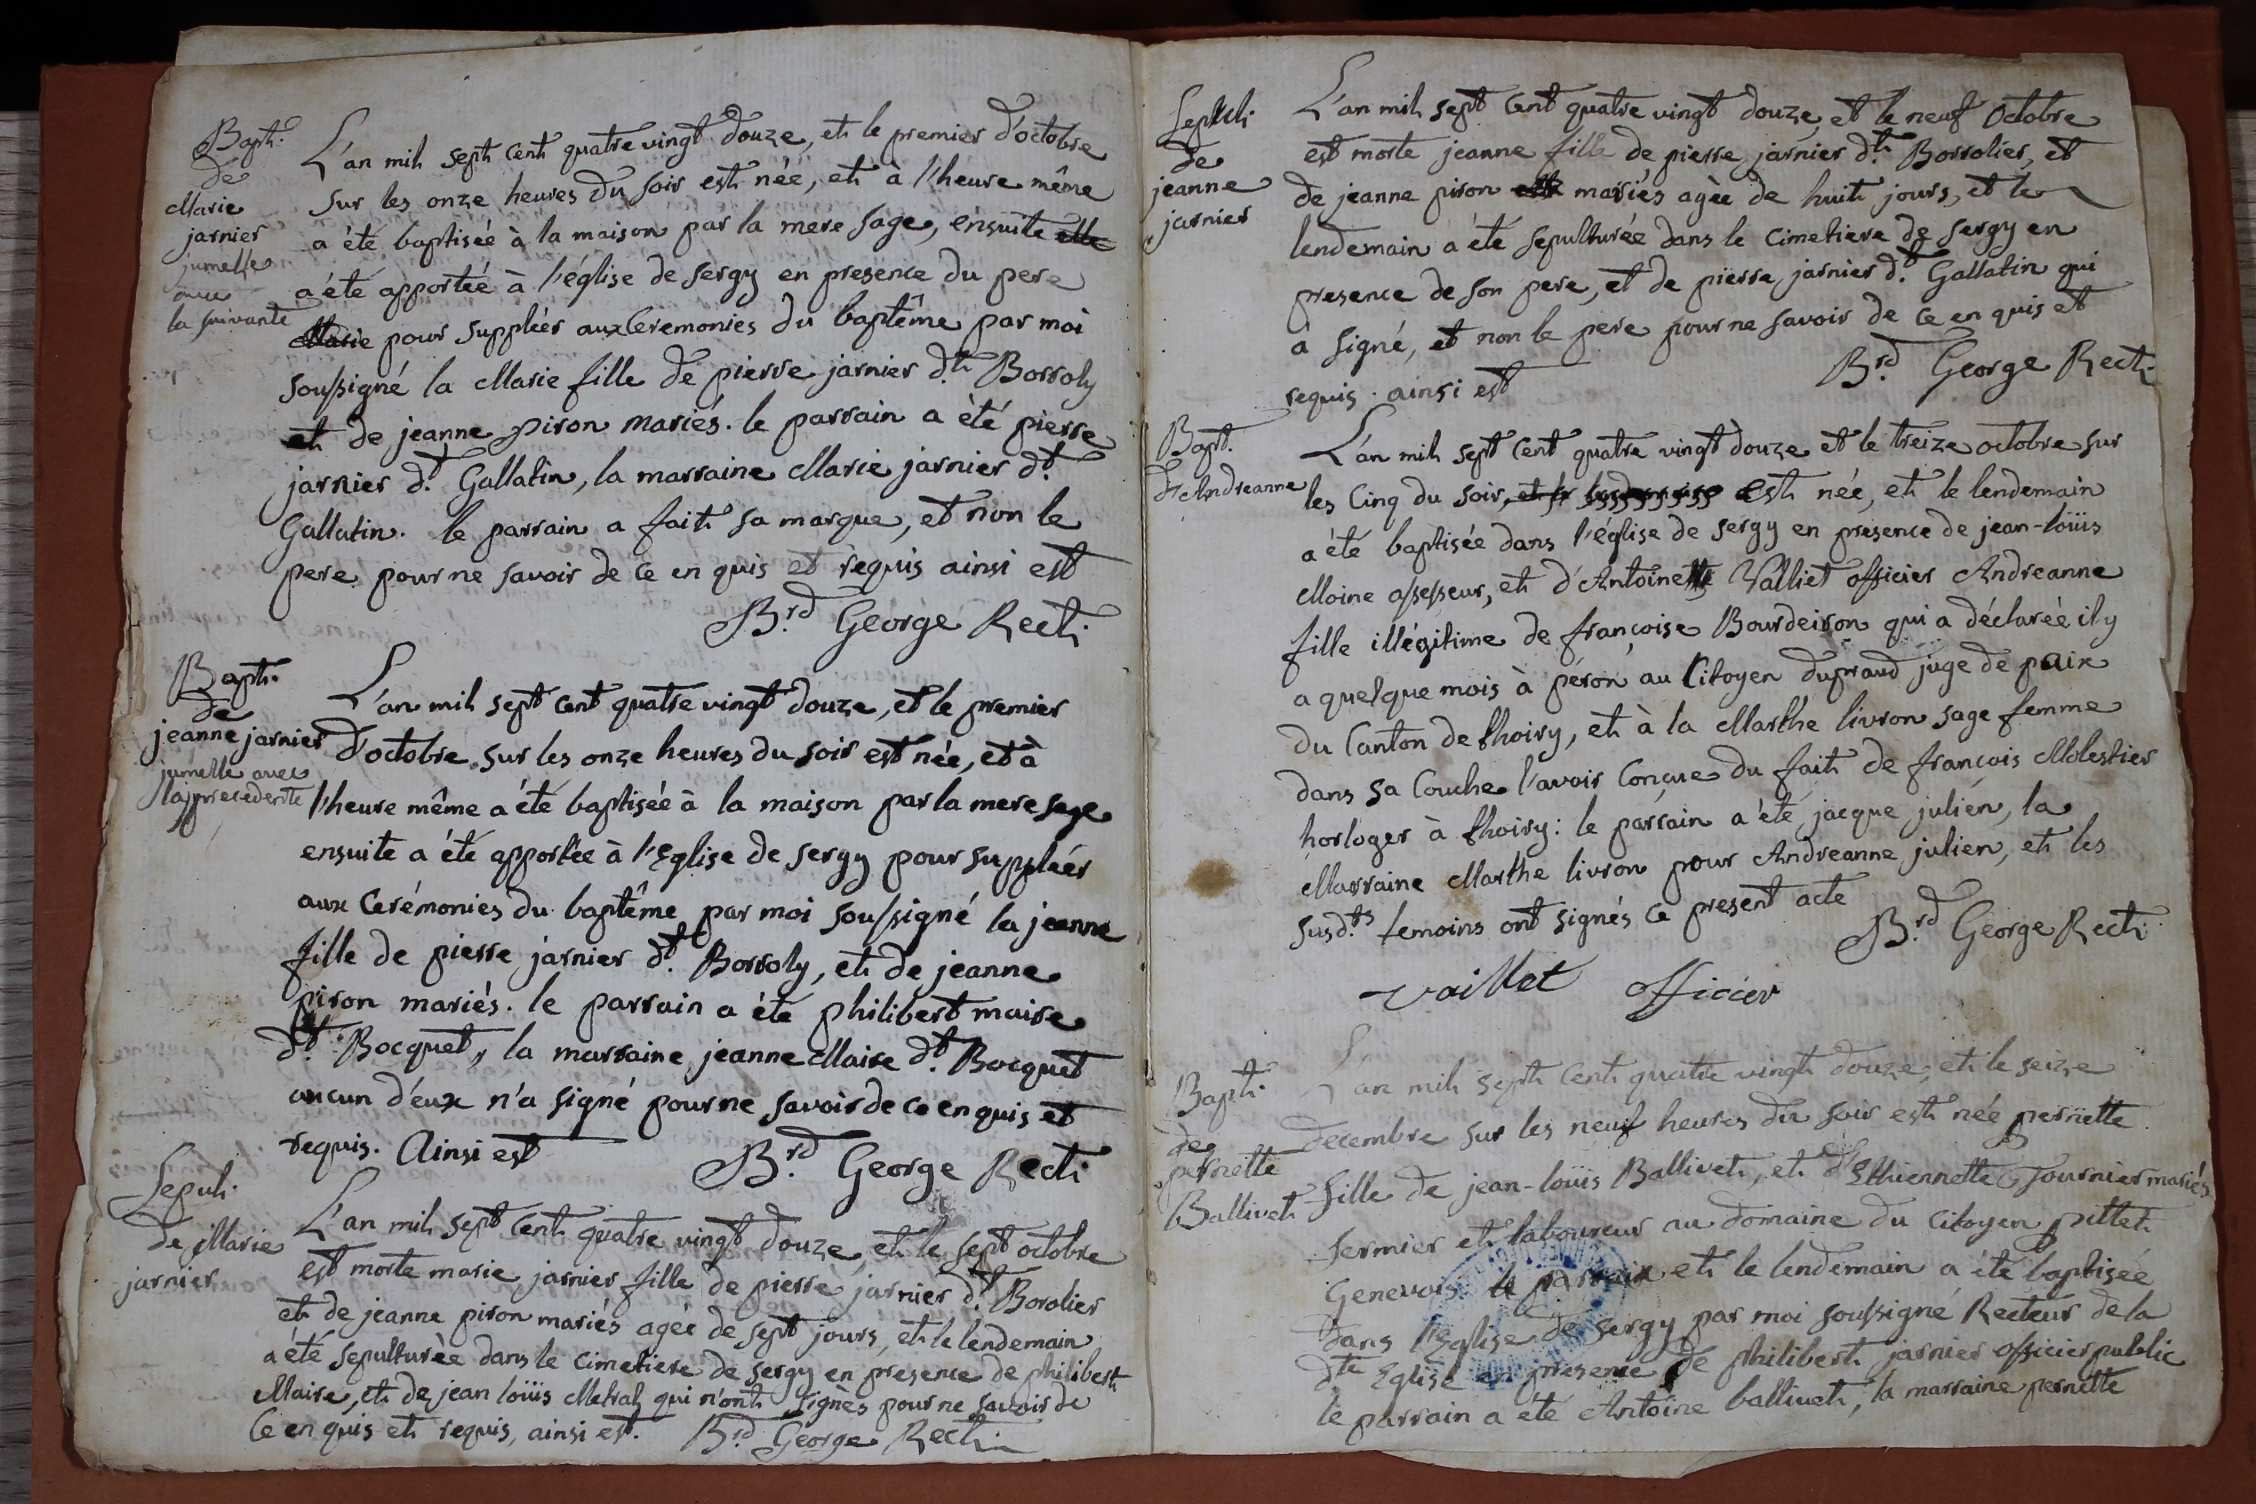 Bapt.
de
Marie
jarnier
jumelle
avec
la suivante
L'an mil sept cent quatre vingt douze, et le premier d'octobre
sur les onze heures du soir est née, et a l'heure même
a été baptisée à la maison par la mere sage, ensuite elle
a été apportéé à l'église de sergy en presence du pere
Marie pour suppléer aux Ceremonies du baptême par moi
soussigné la Marie fille de pierre jarnier dt. Borroly
et de jeanne piron mariés. le parrain a été pierre
jarnier dt. Gallatin, la marraine Marie jarnier dt.
Gallatin. le parrain a fait sa marque, et non le
pere pour ne savoir de ce en quis et requis ainsi est
Brd. George Rect.
Bapt.
de
jeanne jarnier
jumelle avec
la precedente
L'an mil sept cent quatre vingt douze, et le premier
d'octobre sur les onze heures du soir est née, et à
l'heure même a été baptisée à la maison par la mere sage
ensuite a été apportée à l'Eglise de sergy pour suppléer
aux Cerémonies du baptême par moi soussigné la jeanne
fille de pierre jarnier dt. Borroly, et de jeanne
piron mariés. le parrain a été philibert maire
dt. Bocquet, la marraine jeanne Maire dt. Bocquet
aucun d'eux n'a signé pour ne savoir de ce en quis et
requis. Ainsi est
Brd. George Rect.
Sepult.
de Marie
jarnier
L'an mil sept cent quatre vingt douze, et le sept octobre
est morte marie jarnier fille de pierre jarnier dt. Borolier
et de jeanne piron mariés agée de sept jours, et le lendemain
a été sepulturée dans le cimetiere de sergy en presence de philibert
Maire, et de jean loüis Metral qui n'ont signés pour ne savoir de
Ce en quis et requis, ainsi est. Brd. George Rect.
Sepult.
de
jeanne
jarnier
L'an mil sept cent quatre vingt douze et le neuf Octobre
est morte jeanne fille de pierre jarnier dt. Borrolier, et
de jeanne piron mariés agée de huit jours, et le
lendemain a été sepulturée dans le Cimetiere de sergy en
presence de son pere, et de pierre jarnier dt. Gallatin qui
a signé, et non le pere pour ne savoir de ce en quis et
requis. ainsi est
Brd. George Rect.
Bapt.
d'Andreanne
L'an mil sept cent quatre vingt douze et le treize octobre sur
les Cinq du soir, est née, et le lendemain
a été baptisée dans l'église de sergy en presence de jean-loüis
Moine assesseur, et d'Antoine Valliet officier Andreanne
fille illégitime de françoise Bourdeiron qui a déclarée il y
a quelque mois à péron au Citoyen dupraud juge de paix
du Canton de thoiry, et à la Marthe livron sage femme
dans sa Couche l'avoir Conçue du fait de françois Molestier
horloger à thoiry: le parrain a été jacque julien, la
Marraine Marthe livron pour Andreanne julien, et les
susd.ts temoins ont signés ce present acte
Brd. George Rect.
vaillet officier
Bapt.
de
pernette
Ballivet
L'an mil sept cent quatre vingt douze, et le seize
decembre sur les neuf heures du soir est née pernette
fille de jean-loüis Ballivet, et d'Ethiennette fournier mariés
fermier et laboureur au domaine du Citoyen pittet
Genevois le parrain et le lendemain a été baptisée
dans l'Eglise de sergy par moi soussigné Recteur de la
dte Eglise en presence de philibert jarnier officier public
le parrain a été Antoine ballivet, la marraine pernette